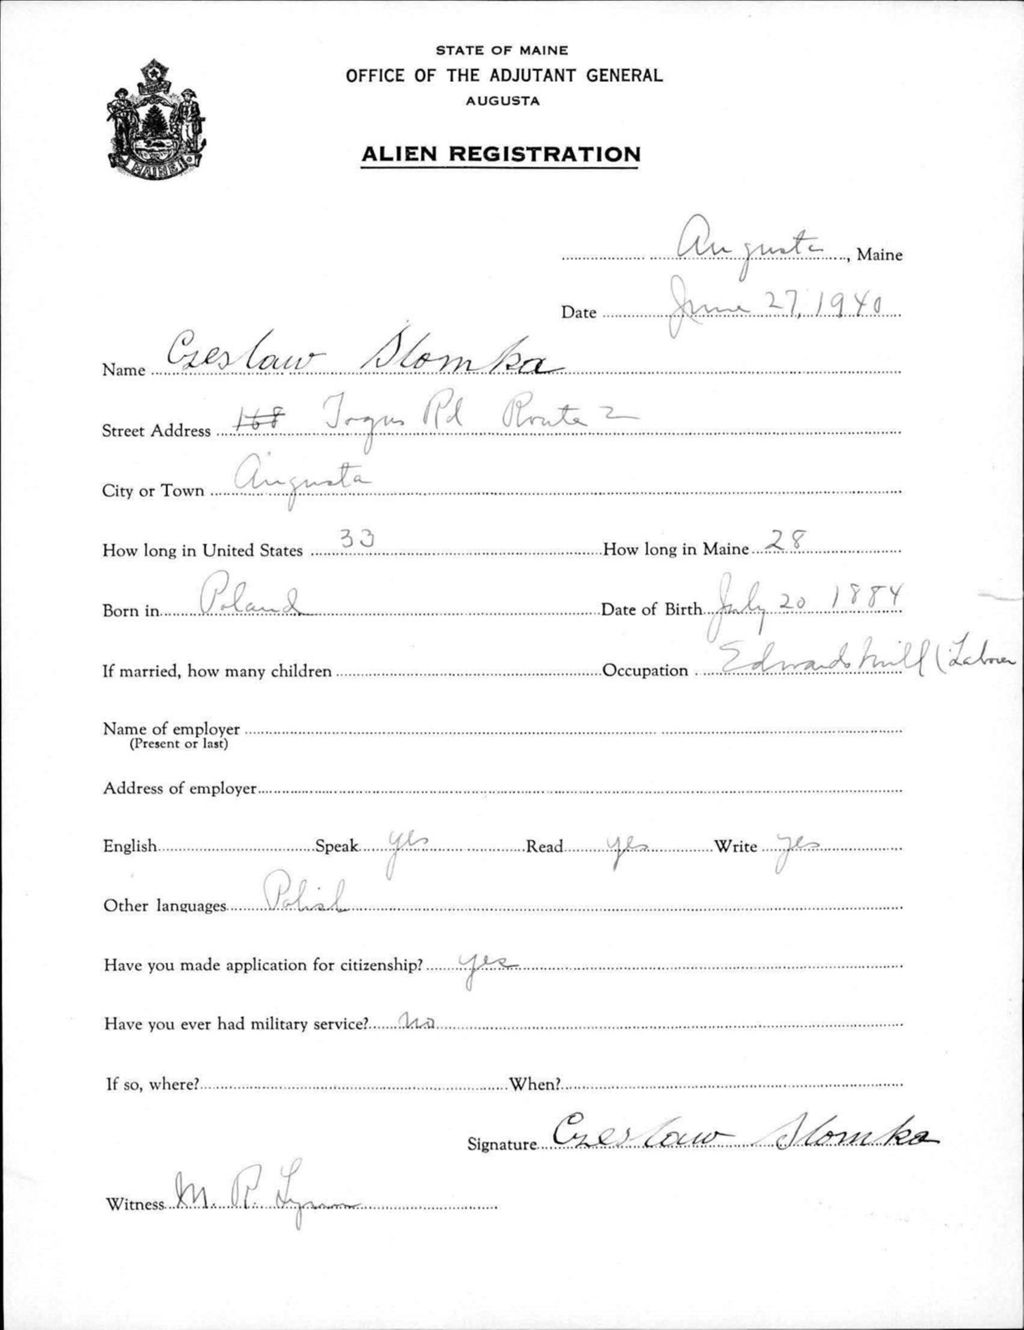 STATE OF MAINE
OFFICE OF THE ADJUTANT GENERAL
AUGUSTA
ALIEN REGISTRATION
MAINE
Augusta, Maine
Date June 27, 1940
Name Czeslaw Slomka
Street Address 168 Togus Rd Route 2
City or Town Augusta
How long in United States 33 How long in Maine 28
Born in Poland Date of Birth July 20 1884
If married, how many children Occupation Edwards Mill (Laborer
Name of employer
(Present or last)
Address of employer
English Speak yes Read yes Write yes
Other languages Polish
Have you made application for citizenship? yes
Have you ever had military service? No
If so, where? When?
Signature Czeslaw Slomka
Witness M. R.